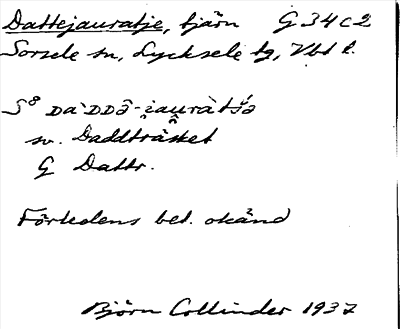 Dattejauratje, tjärn G 34 c 2
Sorsele sn, Lycksele lg, Vbt l.
S° DàˋDDə̑-i̯au̯ràtᵗʃə
sv. Daddträsket
G Dattr.
Förledens bet. okänd
Björn Collinder 1937